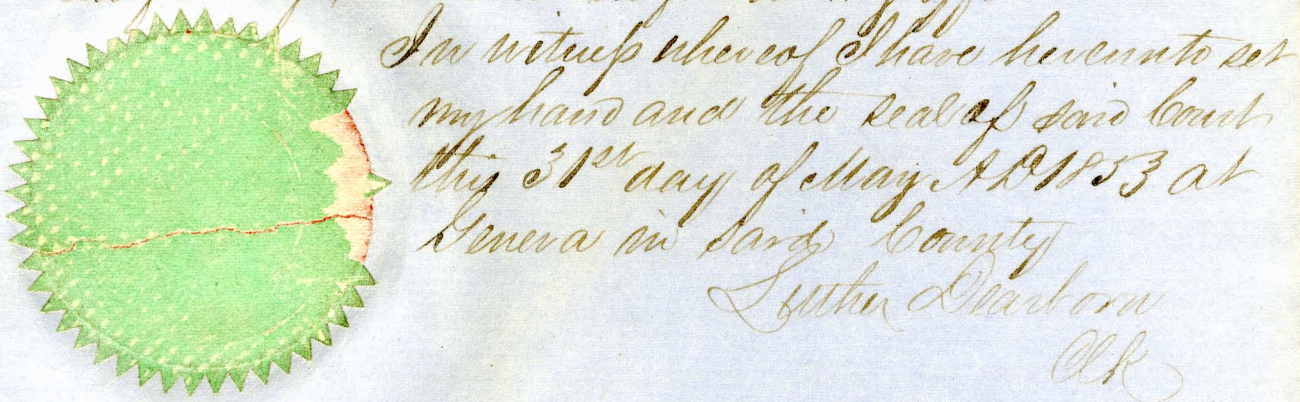 In witness whereof I have hereunto set
my hand and the seal of said Court
this 31st day of May AD 1853 at
Geneva in said County
Luther Dearborn
Clk